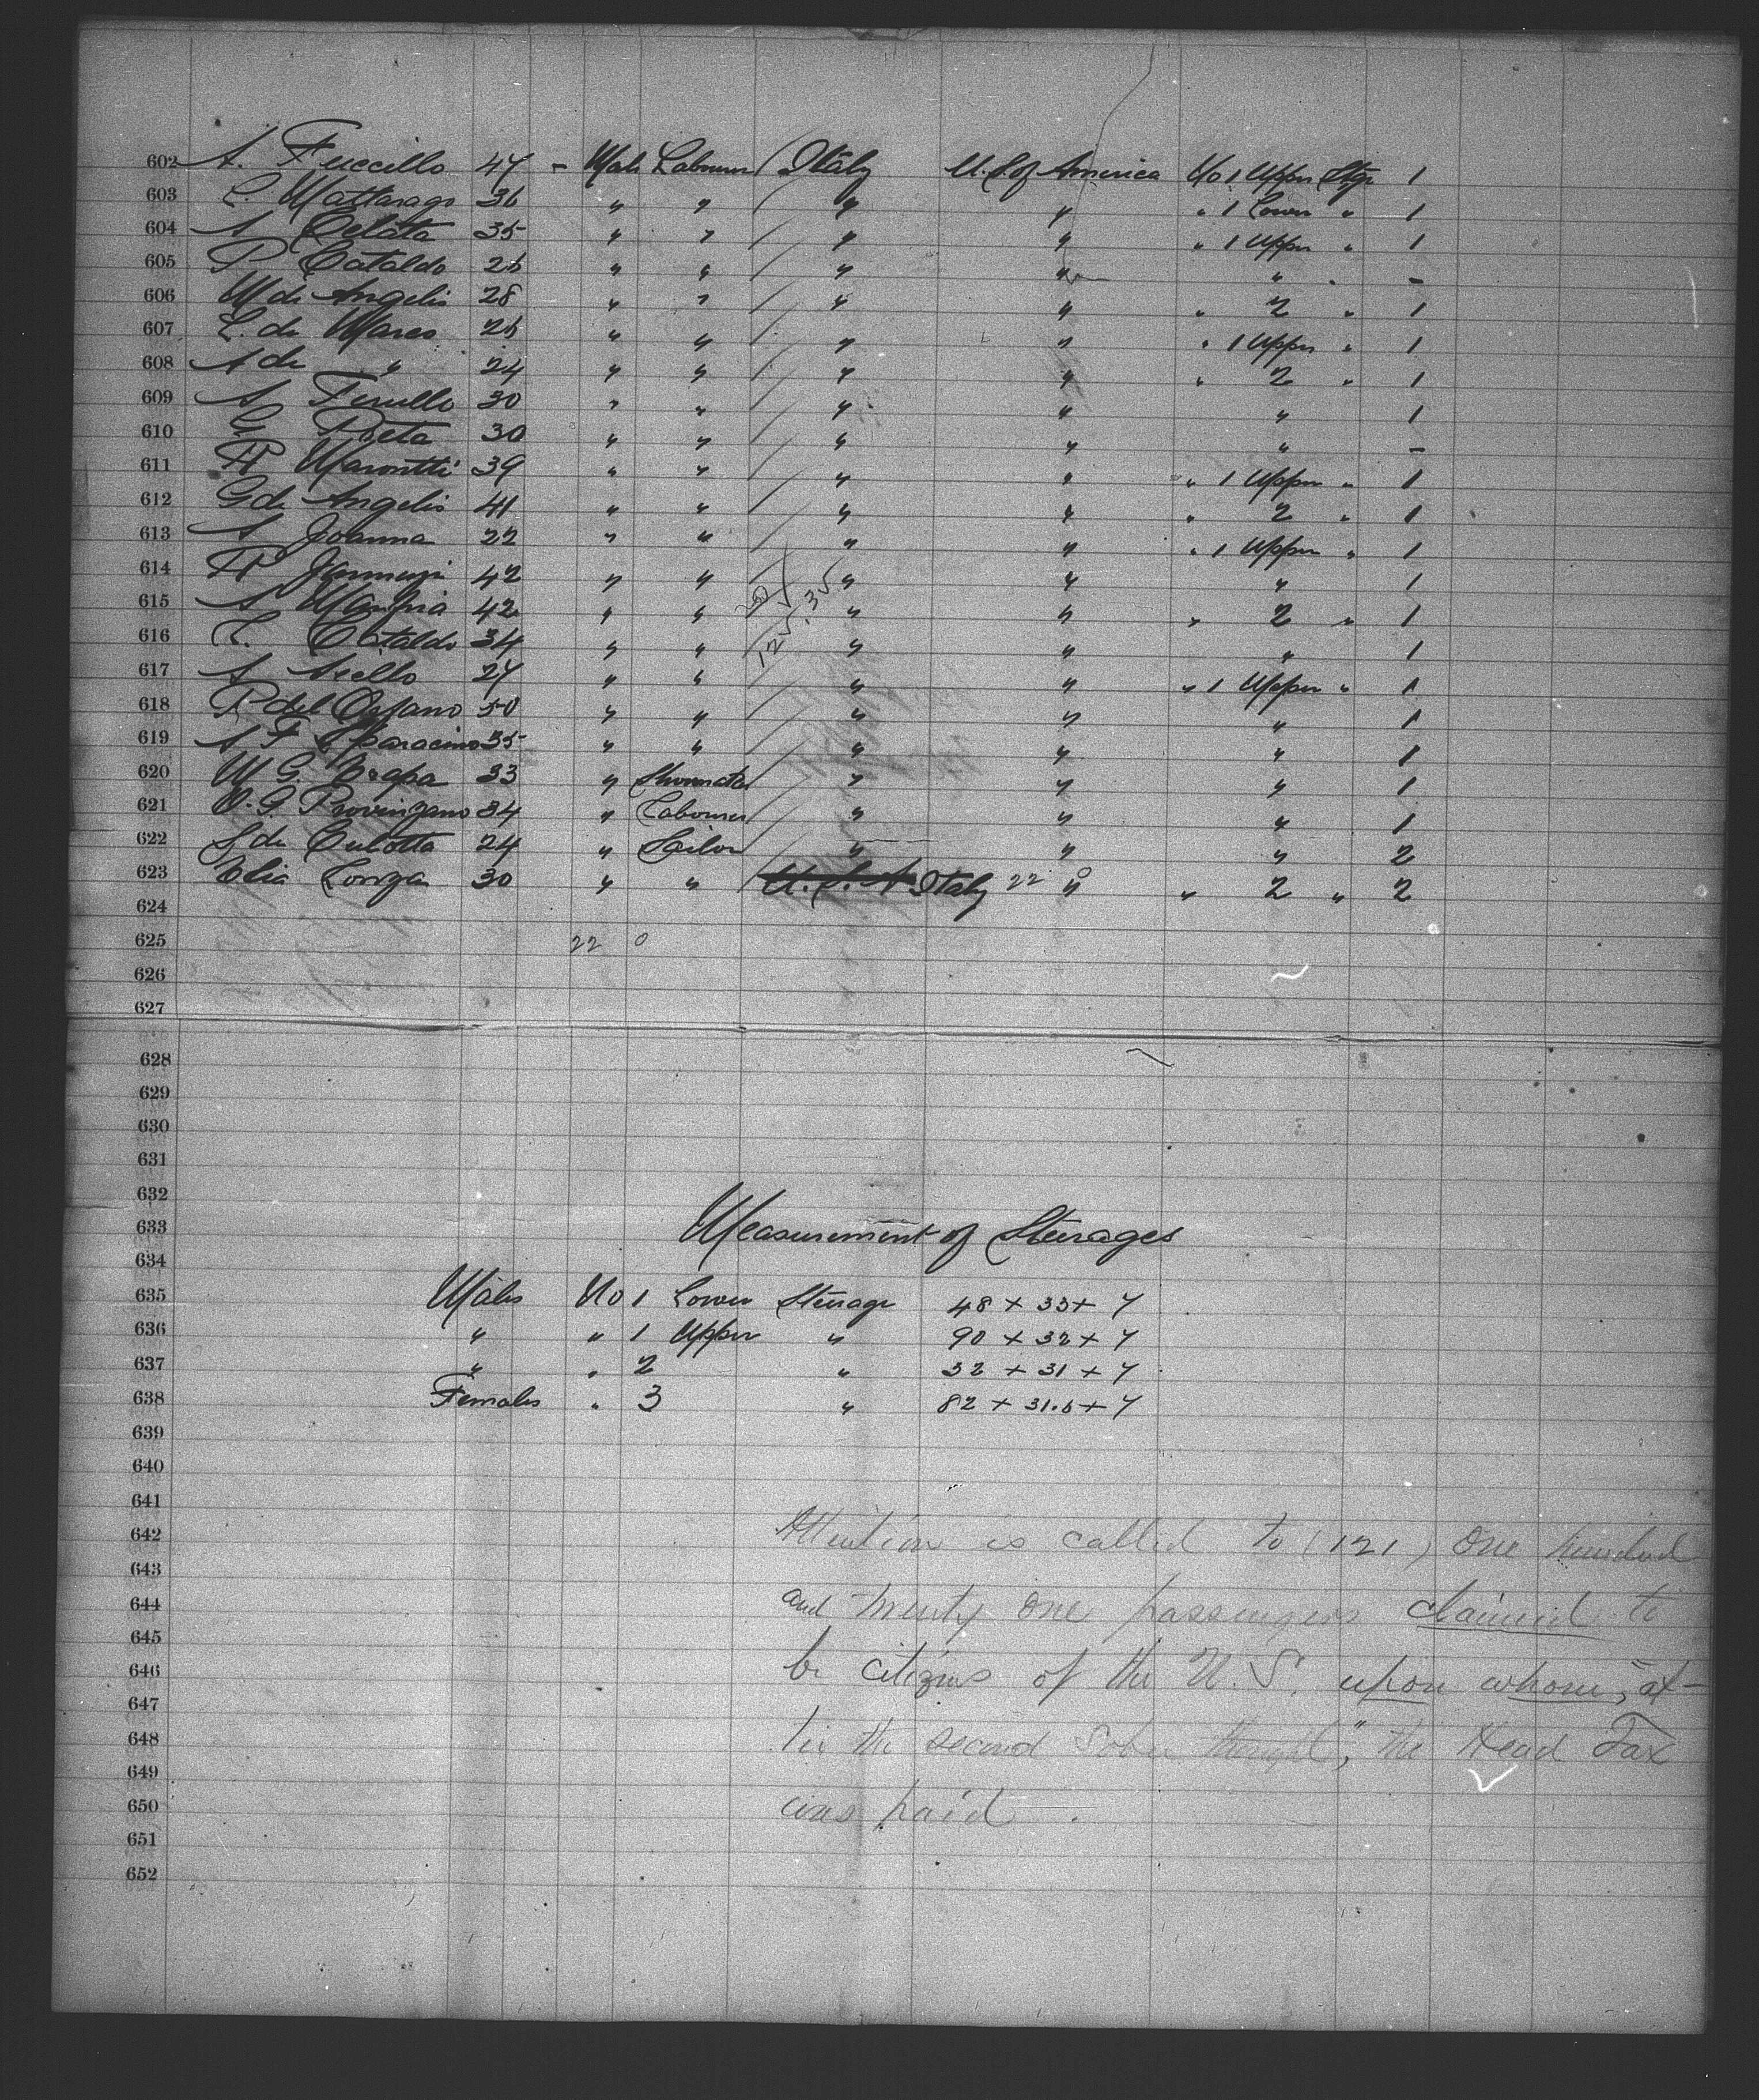 602 A. Fuccillo 47 - Male Labourer Italy U.S. of America No 1 Upper Stge 1
603 L. Mattarago 36 " " " " " 1 Lower " 1
604 A Celata 35 " " " " " 1 Upper " 1
605 P Cataldo 26 " " " " " " -
606 M de Angelis 28 " " " " " 2 " 1
607 L. de Marco 26 " " " " " 1 Upper " 1
608 A de " 24 " " " " " 2 " 1
609 A Ferullo 30 " " " " " 1
610 G Preta 30 " " " " " -
611 F Marontti 39 " " " " " 1 Upper " 1
612 G de Angelis 41 " " " " " 2 " 1
613 A Joanna 22 " " " " " 1 Upper " 1
614 F 42 " " " " " 1
615 A 42 " " " " " 2 " 1
616 L. Cataldo 34 " " " " " 1
617 A Aiello 27 " " " " " 1 Upper " 1
618 P del 50 " " " " " 1
619 A F Sparacino 35 " " " " " 1
620 M G. 33 " " " " 1
621 Provinzano 34 " Labourer " " " 1
622 de Culotta 24 " Sailor " " " 2
623 Elia 30 " " U.S.A Italy 22 0 " " 2 " 2
624
625 22 0
626
627
628
629
630
631
632
633 Measurement of Steerages
634
635 Males No 1 Lower Steerage 48 + 33 + 7
636 " " 1 Upper " 90 + 32 + 7
637 " " 2 " 32 + 31 + 7
638 Females " 3 " 82 + 31.6 + 7
639
640
641
642 Attention is called to (121) One hundred
643
644 and twenty one passengers claimed to
645
646 be citizens of the U.S. upon whom, af-
647
648 ter the second sober thought", the Head Tax
649
650 was paid.
651
652